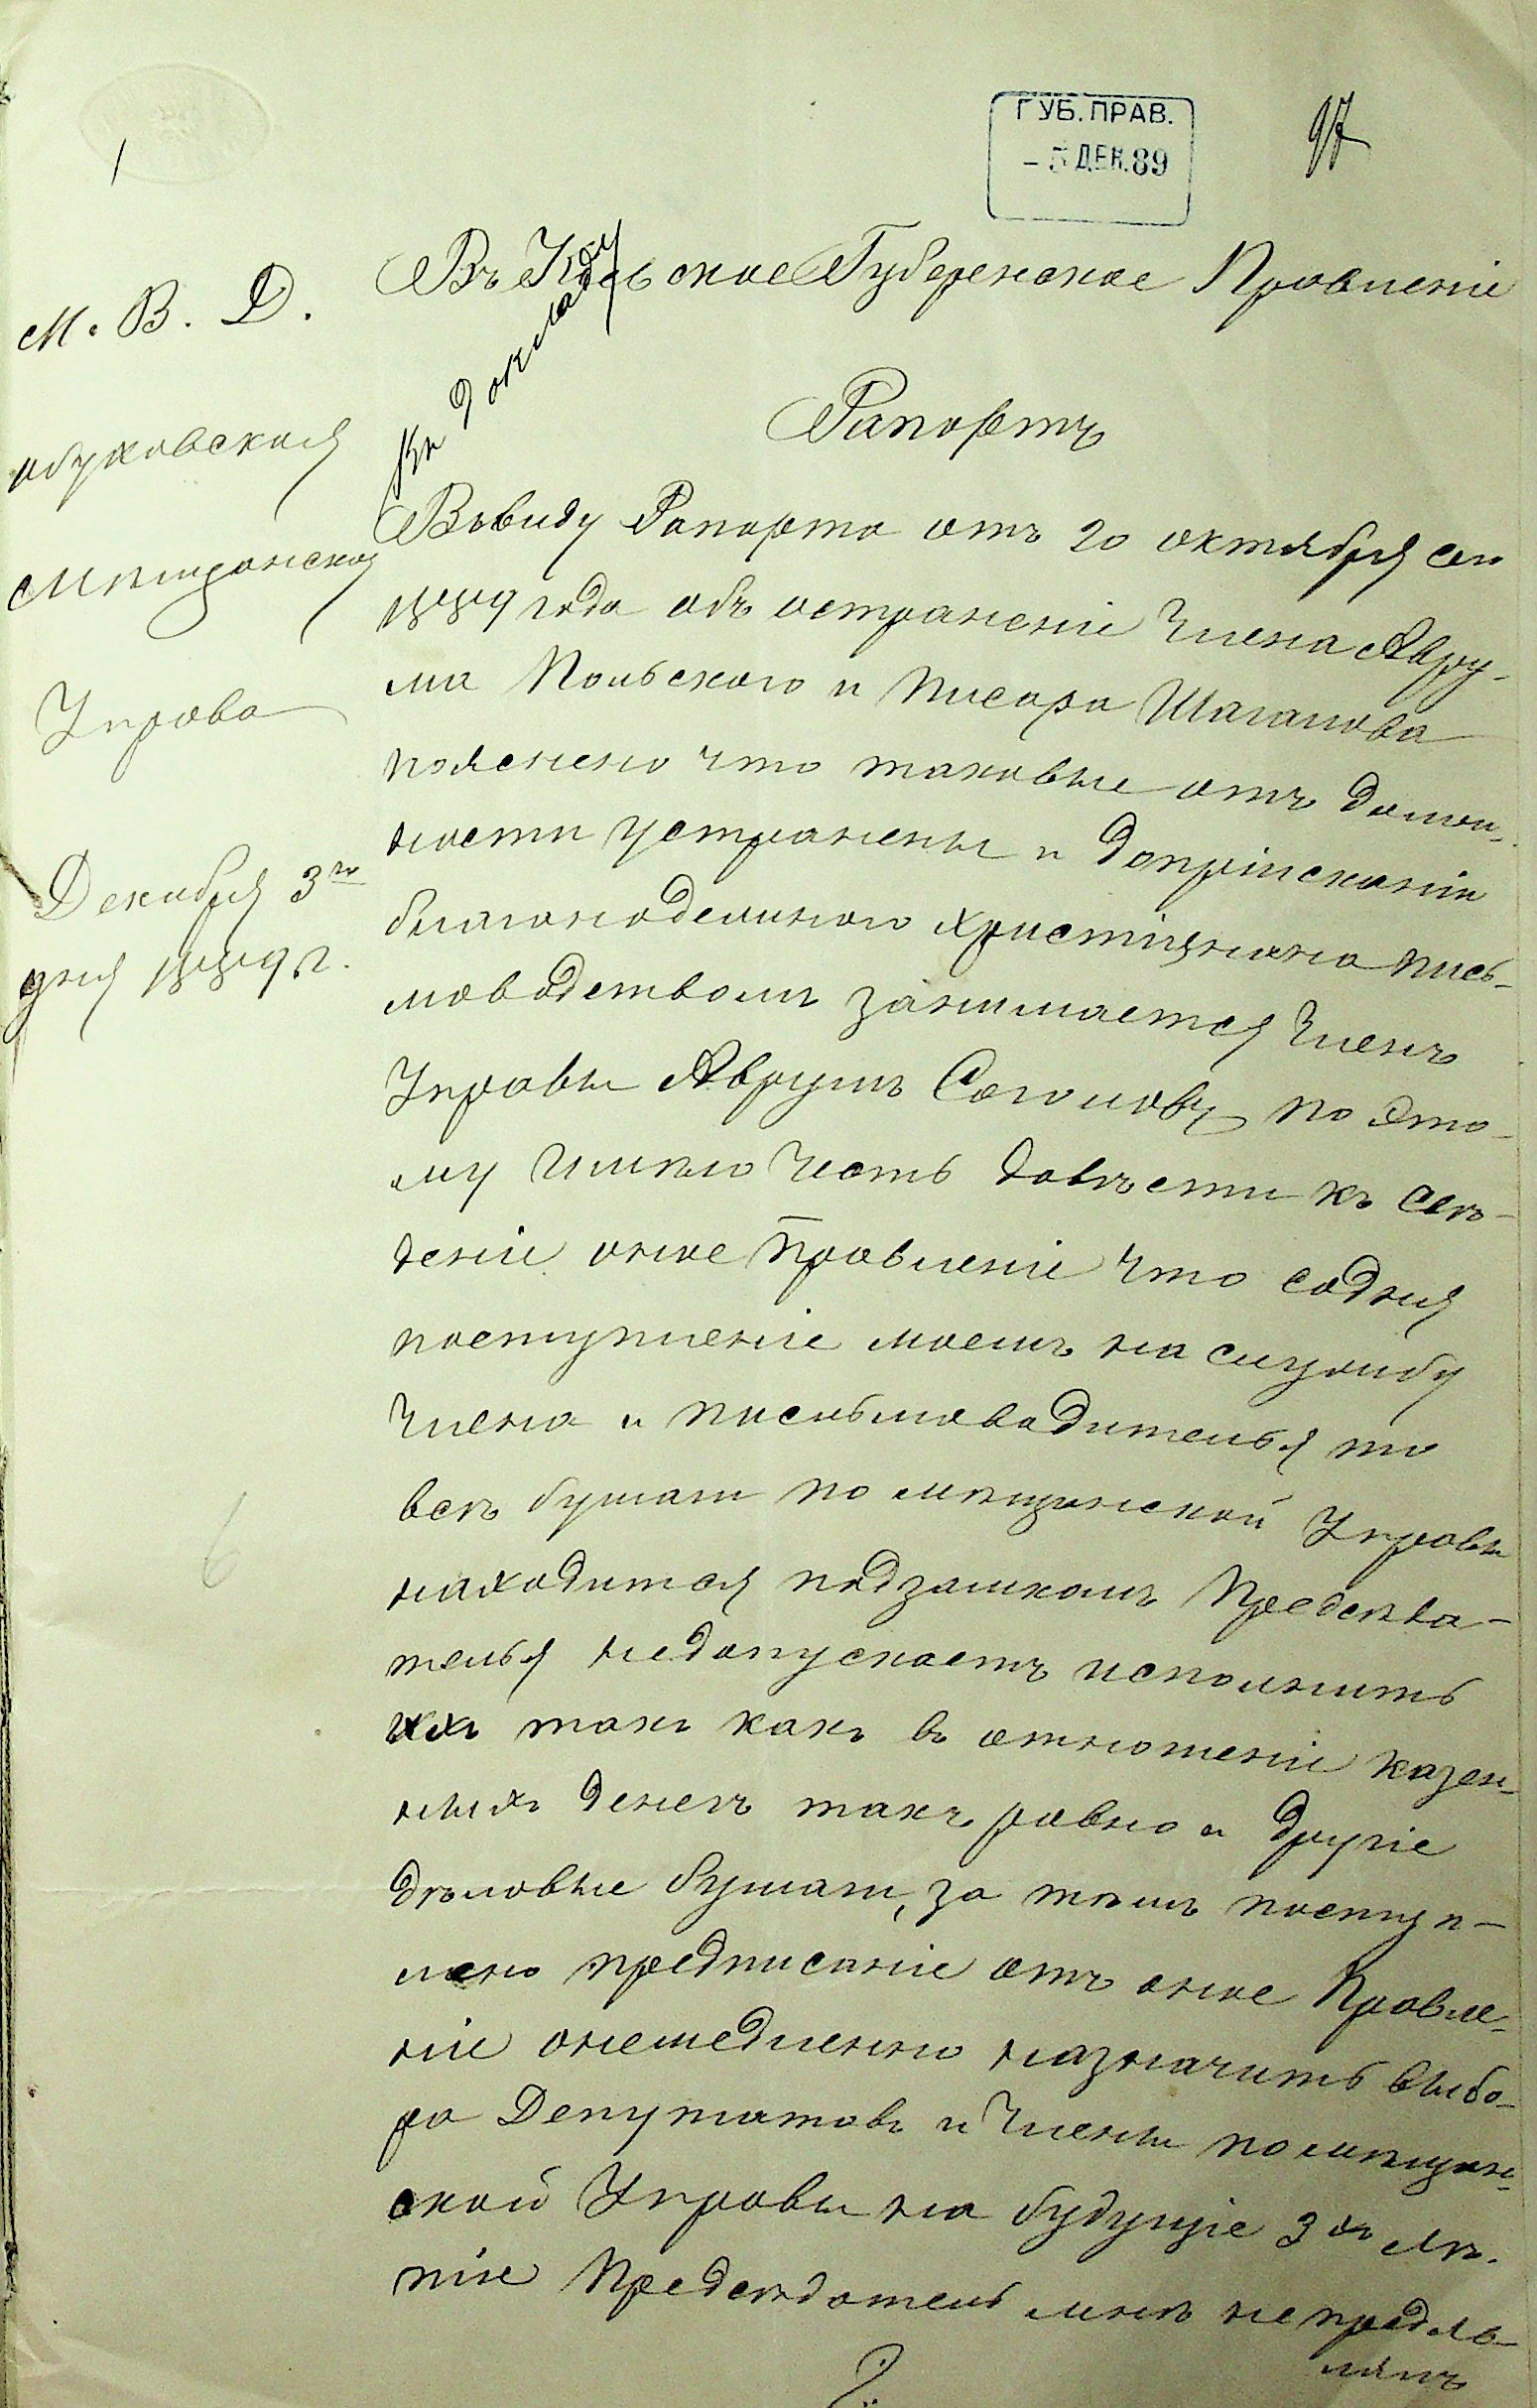 ГУБ. ПРАВ.
- 5 ДЕК. 89
97
1
М. В. Д.
Обуховская
Мѣщанская
Управа
Декабря 3го
дня 1889 г.
Къ докладу
Въ Кіевское Губернское Правленіе
Рапортъ
Ввиду Рапорта отъ 20 октября сего
1889 года объ остраненіе Члена Авру-
ма Польскаго и писара Шагалова
пояснено что таковые отъ долж-
ности устранены и допріисканія
благонаделиного христіянина пись-
моводствомъ занимается Членъ
Управы Аврумъ по это-
му имѣю честь довѣсти къ свѣ-
деніе оное Правленіе что содня
поступленіе моемъ на службу
Члена и письмоводителья то
всѣ бумаги по мѣщанской Управы
находится подзамкомъ Предсѣда-
телья недопускаетъ исполнить
ихъ такъ какъ въ отношеніи казен-
ныхъ денегъ такъ равно и другіе
дѣловые бумаги, за тѣмъ поступ-
лено предписаніе отъ оное Правле-
ніе онемедленно назначить выбо-
ра Депутатовъ и Члены помѣщан-
ской Управы на будущіе 3хъ лѣ-
тіе Предсѣдатель мнѣ непредла-
гаетъ